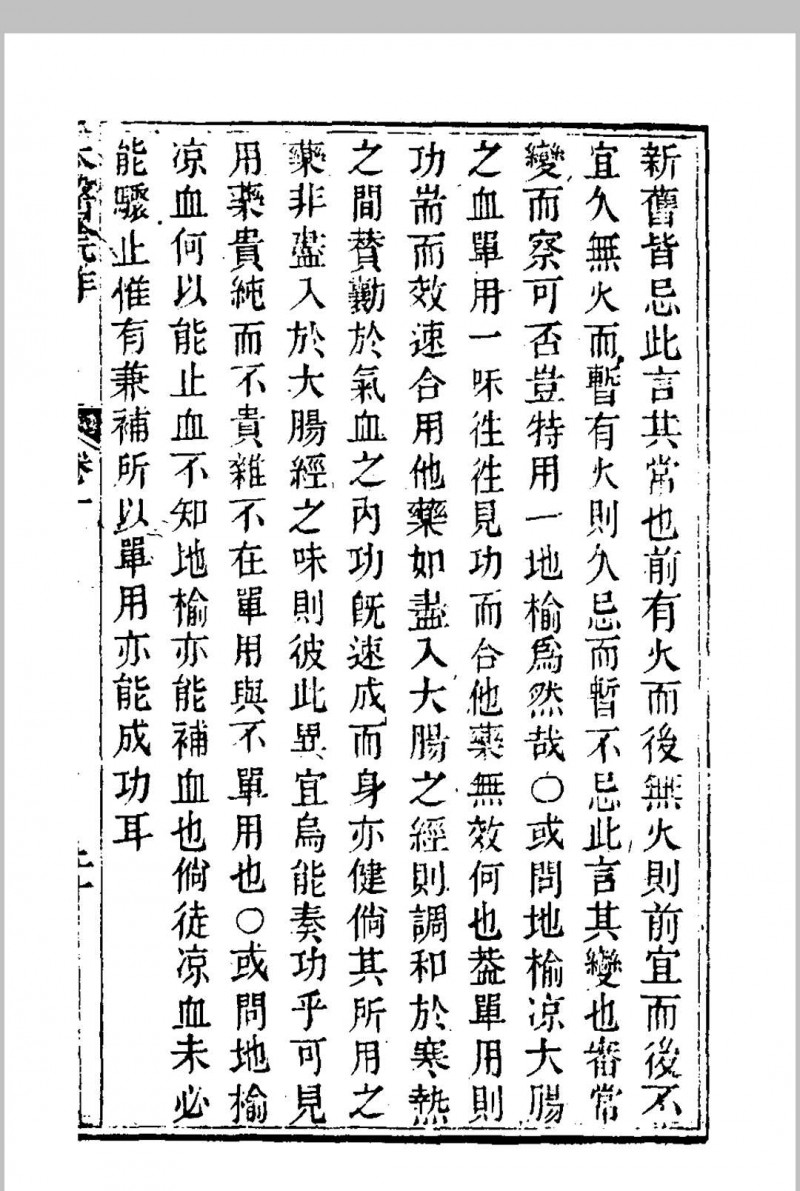 新舊皆忌此言其常也前有火而後無火則前宜而後不
宜久無火而暫有火則久忌而暫不忌此言其變也審常
變而察可否豈特用一地榆爲然哉○或問地榆凉大腸
之血單用一味徃徃見功而合他藥無效何也葢單用則
功耑而效速合用他藥如盡入大腸之經則調和於寒熱
之間賛勷於氣血之內功旣速成而身亦健倘其所用之
藥非盡入於大腸經之味則彼此異宜烏能奏功乎可見
用藥貴純而不貴雜不在單用與不單用也○或問地榆
凉血何以能止血不知地榆亦能補血也倘徒凉血未必
能驟止惟有兼補所以單用亦能成功耳
卷一